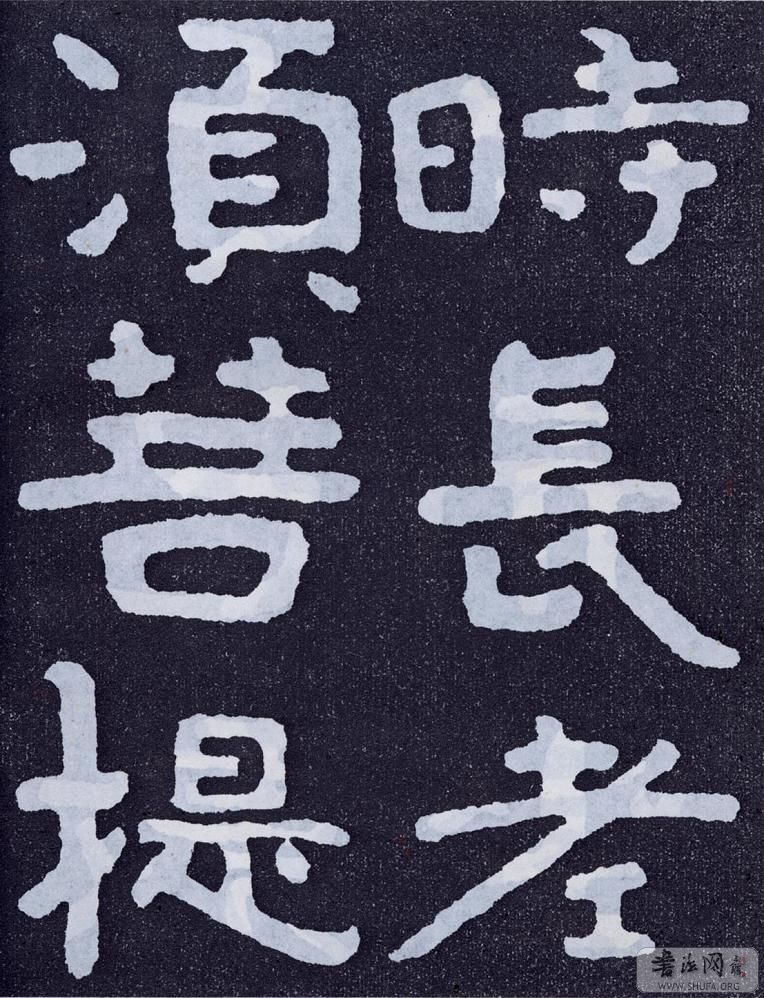 時長老
湏菩提
書法网
WWW.SHUFA.ORG